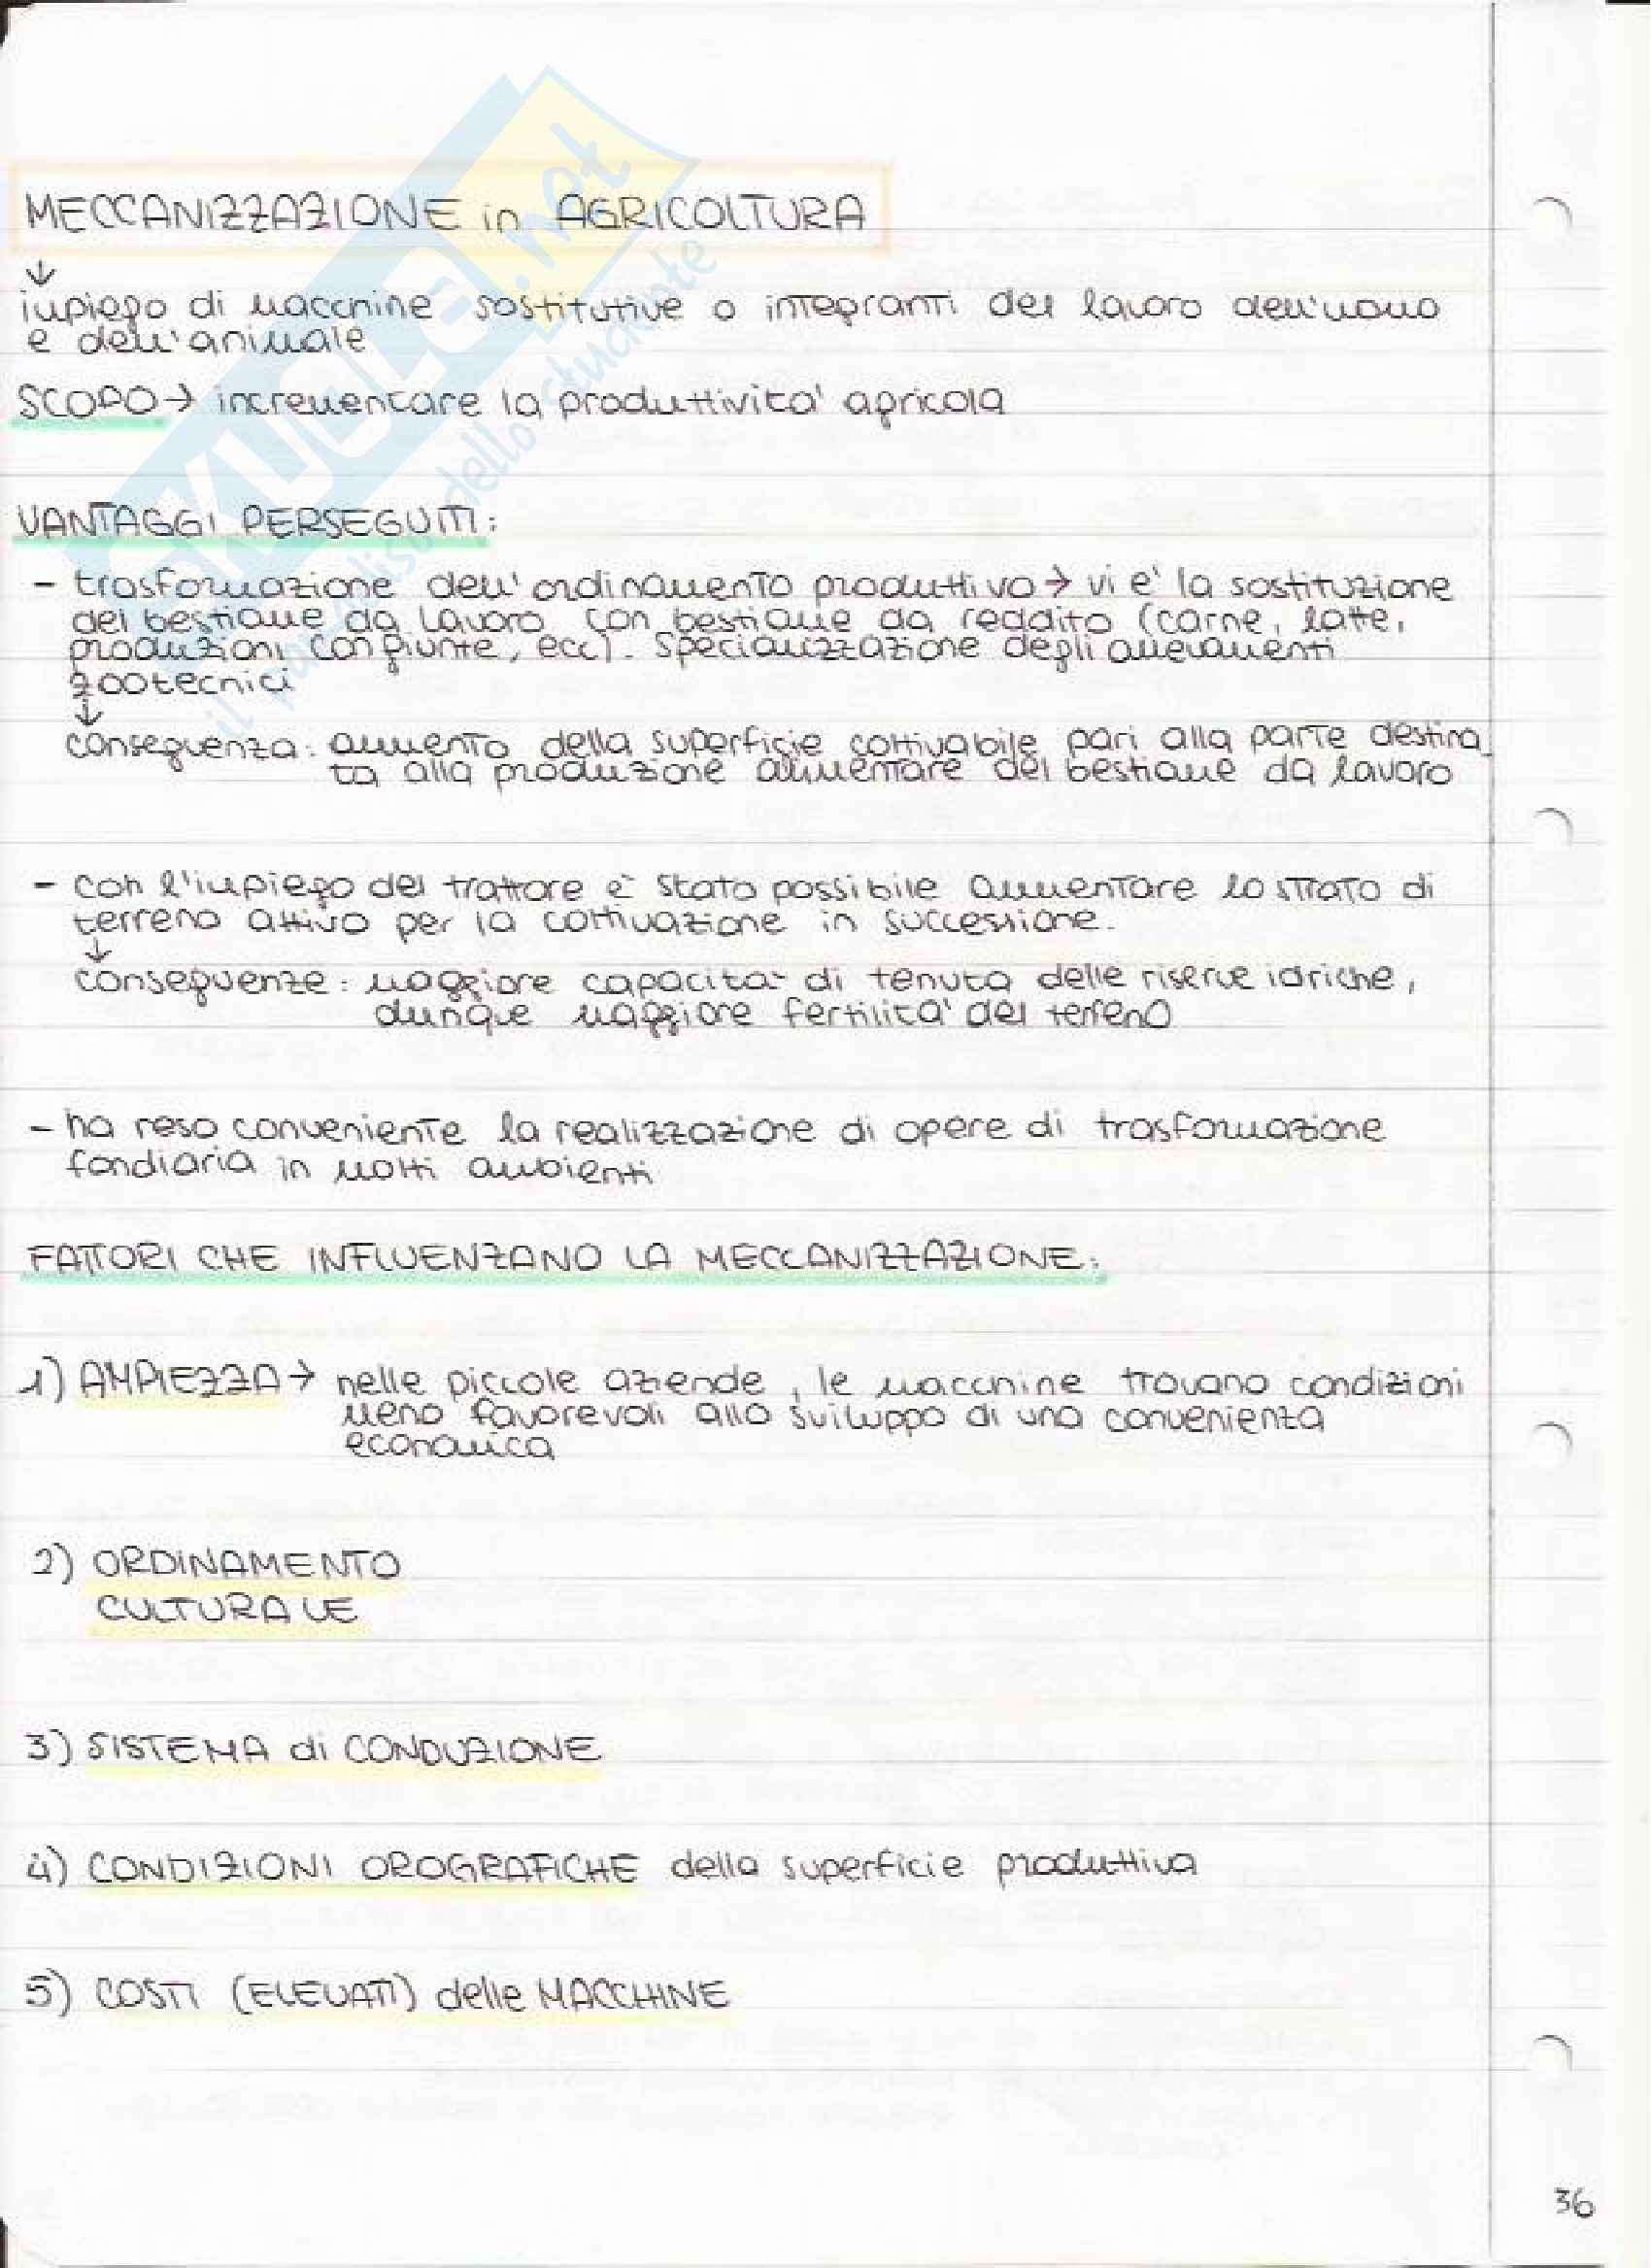 MECCANIZZAZIONE in AGRICOLTURA
↓
impiego di macchine sostitutive o integranti del lavoro dell'uomo
e dell'animale
SCOPO → incrementare la produttivita' agricola
VANTAGGI PERSEGUITI:
- trasformazione dell'ordinamento produttivo → vi e' la sostituzione
del bestiame da lavoro con bestiame da reddito (carne, latte,
produzioni congiunte, ecc). Specializzazione degli allevamenti
zootecnici
↓
conseguenza: aumento della superficie coltivabile pari alla parte destina_
ta alla produzione alimentare del bestiame da lavoro
- con l'impiego del trattore è stato possibile aumentare lo strato di
terreno attivo per la coltivazione in successione.
↓
conseguenze: maggiore capacità di tenuta delle riserve idriche,
dunque maggiore fertilita' del terreno
- ha reso conveniente la realizzazione di opere di trasformazione
fondiaria in molti ambienti
FATTORI CHE INFLUENZANO LA MECCANIZZAZIONE:
1) AMPIEZZA → nelle piccole aziende, le macchine trovano condizioni
meno favorevoli allo sviluppo di una convenienza
economica
2) ORDINAMENTO
CULTURALE
3) SISTEMA di CONDUZIONE
4) CONDIZIONI OROGRAFICHE della superficie produttiva
5) COSTI (ELEVATI) delle MACCHINE
36
SKUOLA.net
il paradiso dello studente